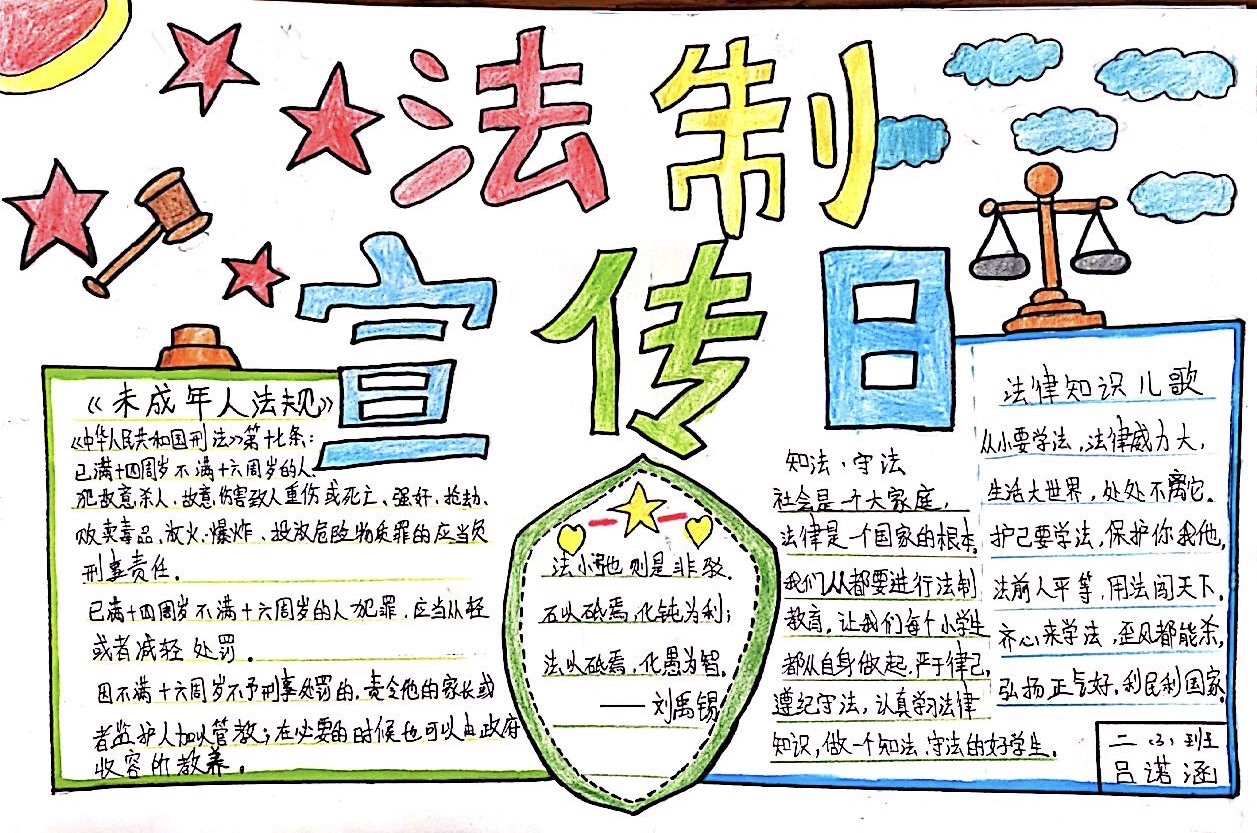 法制
宣传日
《未成年人法规》
《中华人民共和国刑法》第十七条:
已满十四周岁不满十六周岁的人.
犯故意杀人、故意伤害致人重伤或死亡、强奸、抢劫、
贩卖毒品、放火、爆炸、投放危险物质罪的应当负
刑事责任.
已满十四周岁不满十六周岁的人犯罪,应当从轻
或者减轻处罚.
因不满十六周岁不予刑事处罚的,责令他的家长或
者监护人加以管教;在必要的时候也可以由政府
收容所教养.
法小弛则是非驳.
石以砥焉,化钝为利;
法以砥焉,化愚为智.
——刘禹锡
知法、守法
社会是一个大家庭,
法律是一个国家的根本.
我们从都要进行法制
教育,让我们每个小学生
都从自身做起,严于律己,
遵纪守法,认真学习法律
知识,做一个知法、守法的好学生.
法律知识儿歌
从小要学法,法律威力大,
生活大世界,处处不离它.
护己要学法,保护你我他,
法前人平等,用法闯天下.
齐心来学法,歪风都能杀,
弘扬正气好,利民利国家
二(3)班
吕诺涵